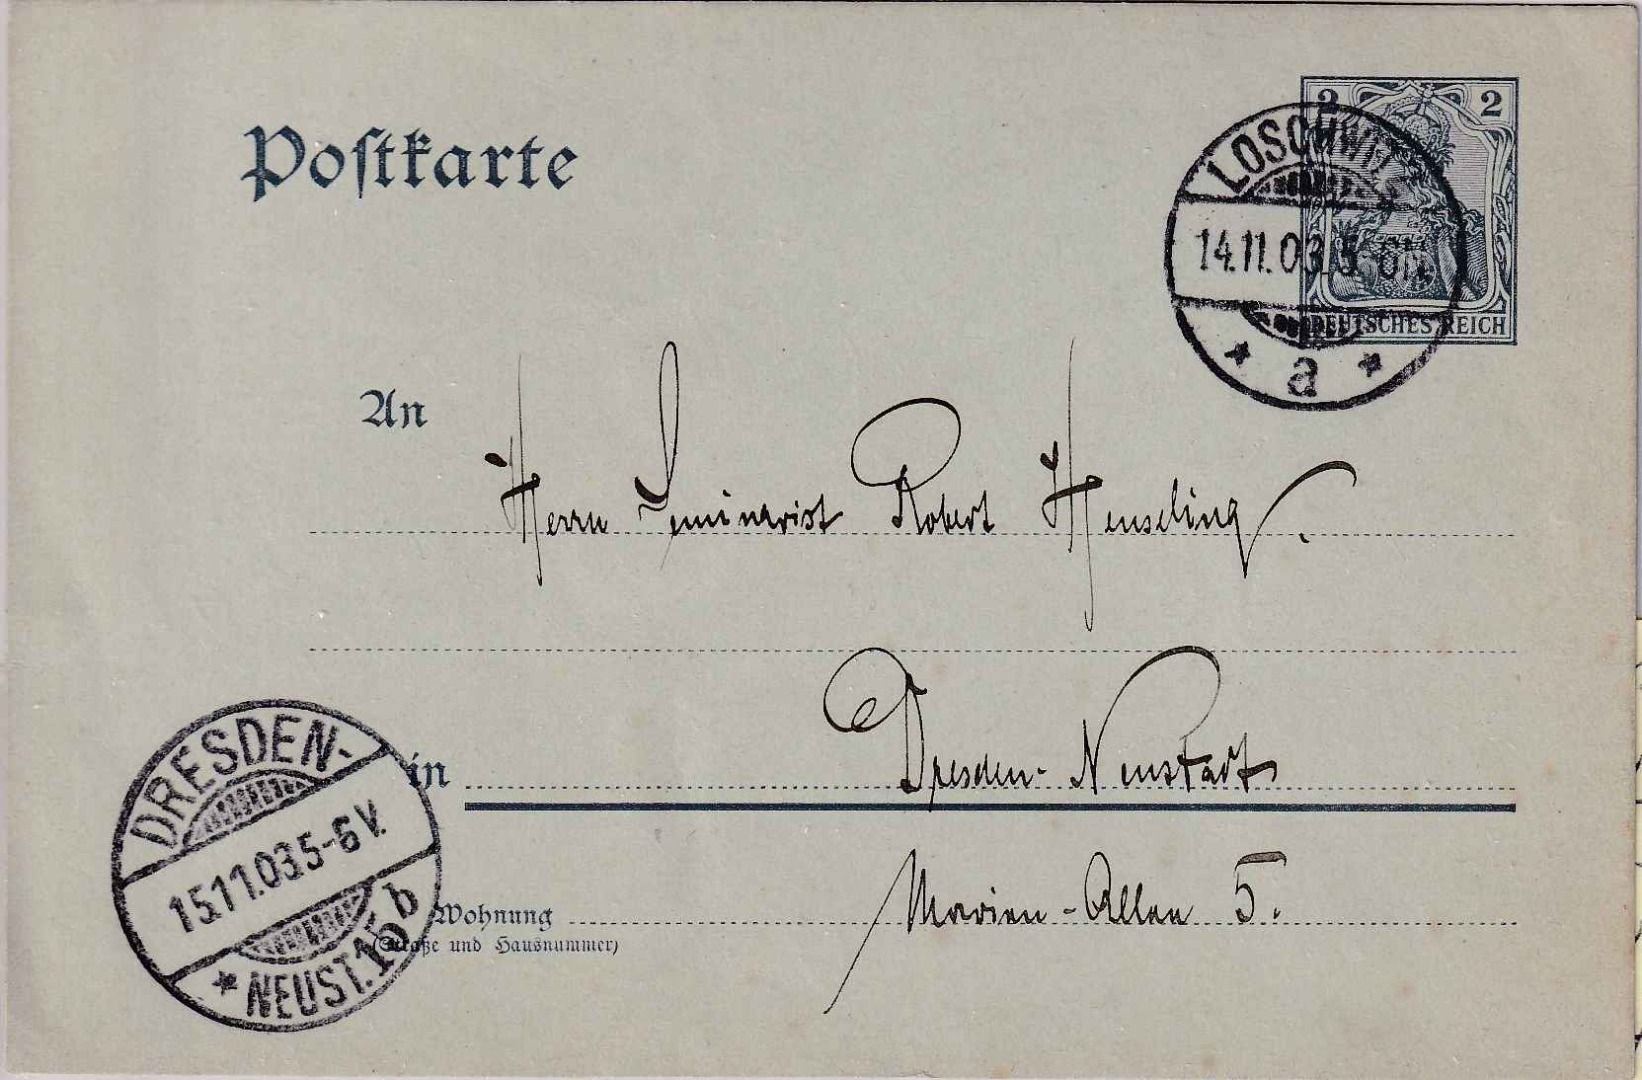 Postkarte
2 2
DEUTSCHES REICH
LOSCHWITZ
14.11.03. 5-6N.
* a *
An
Herrn Seminarist Robert Henseling.
in Dresden-Neustadt
Marien-Allee 5.
Wohnung
(Straße und Hausnummer)
DRESDEN-
15.11.03.5-6V.
* NEUST.15 b